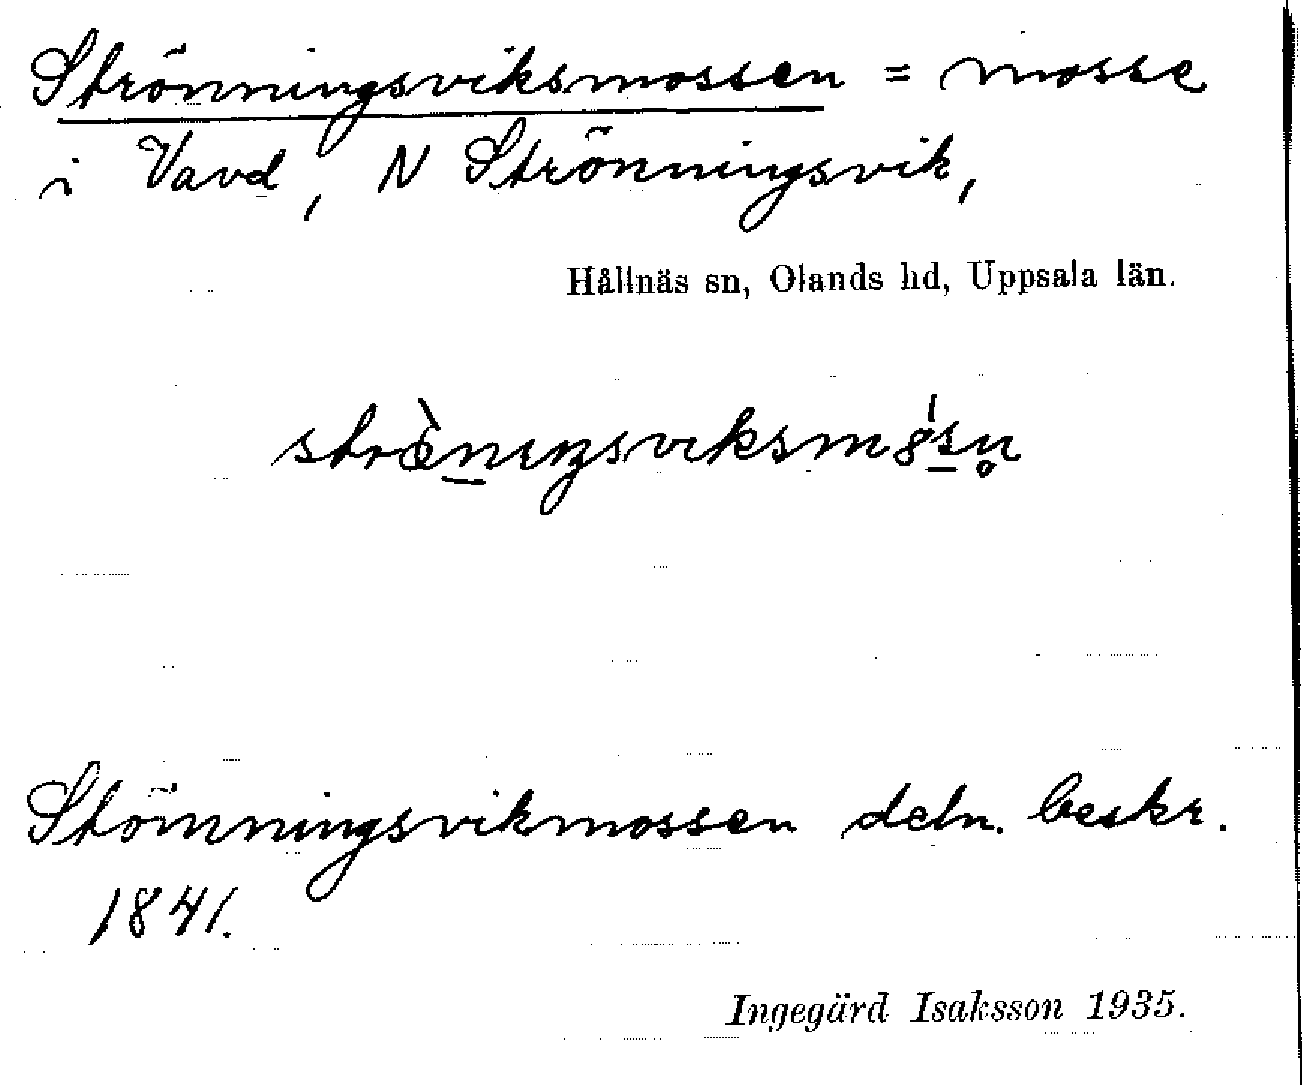 Strönningsviksmossen = mosse
i Vavd, N Strönningsvik,
Hållnäs sn, Olands hd, Uppsala län.
Stömningsvikmossen deln. beskr.
1841.
Ingegärd Isaksson 1935.